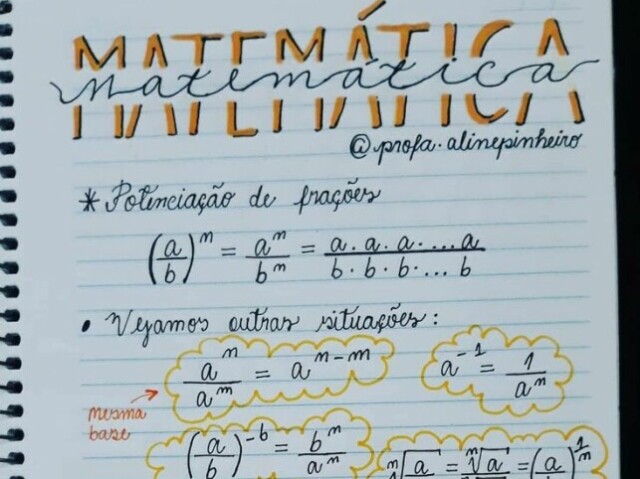 MATEMÁTICA
matemática
@profa.alinepinheiro
* Potenciação de frações
(a/b)^m = a^m/b^m = a·a·a·...a/b·b·b·...b
• Vejamos outras situações:
a^n/a^m = a^(n-m) a^-1 = 1/a^n
mesma
base
(a/b)^-b = b^n/a^n